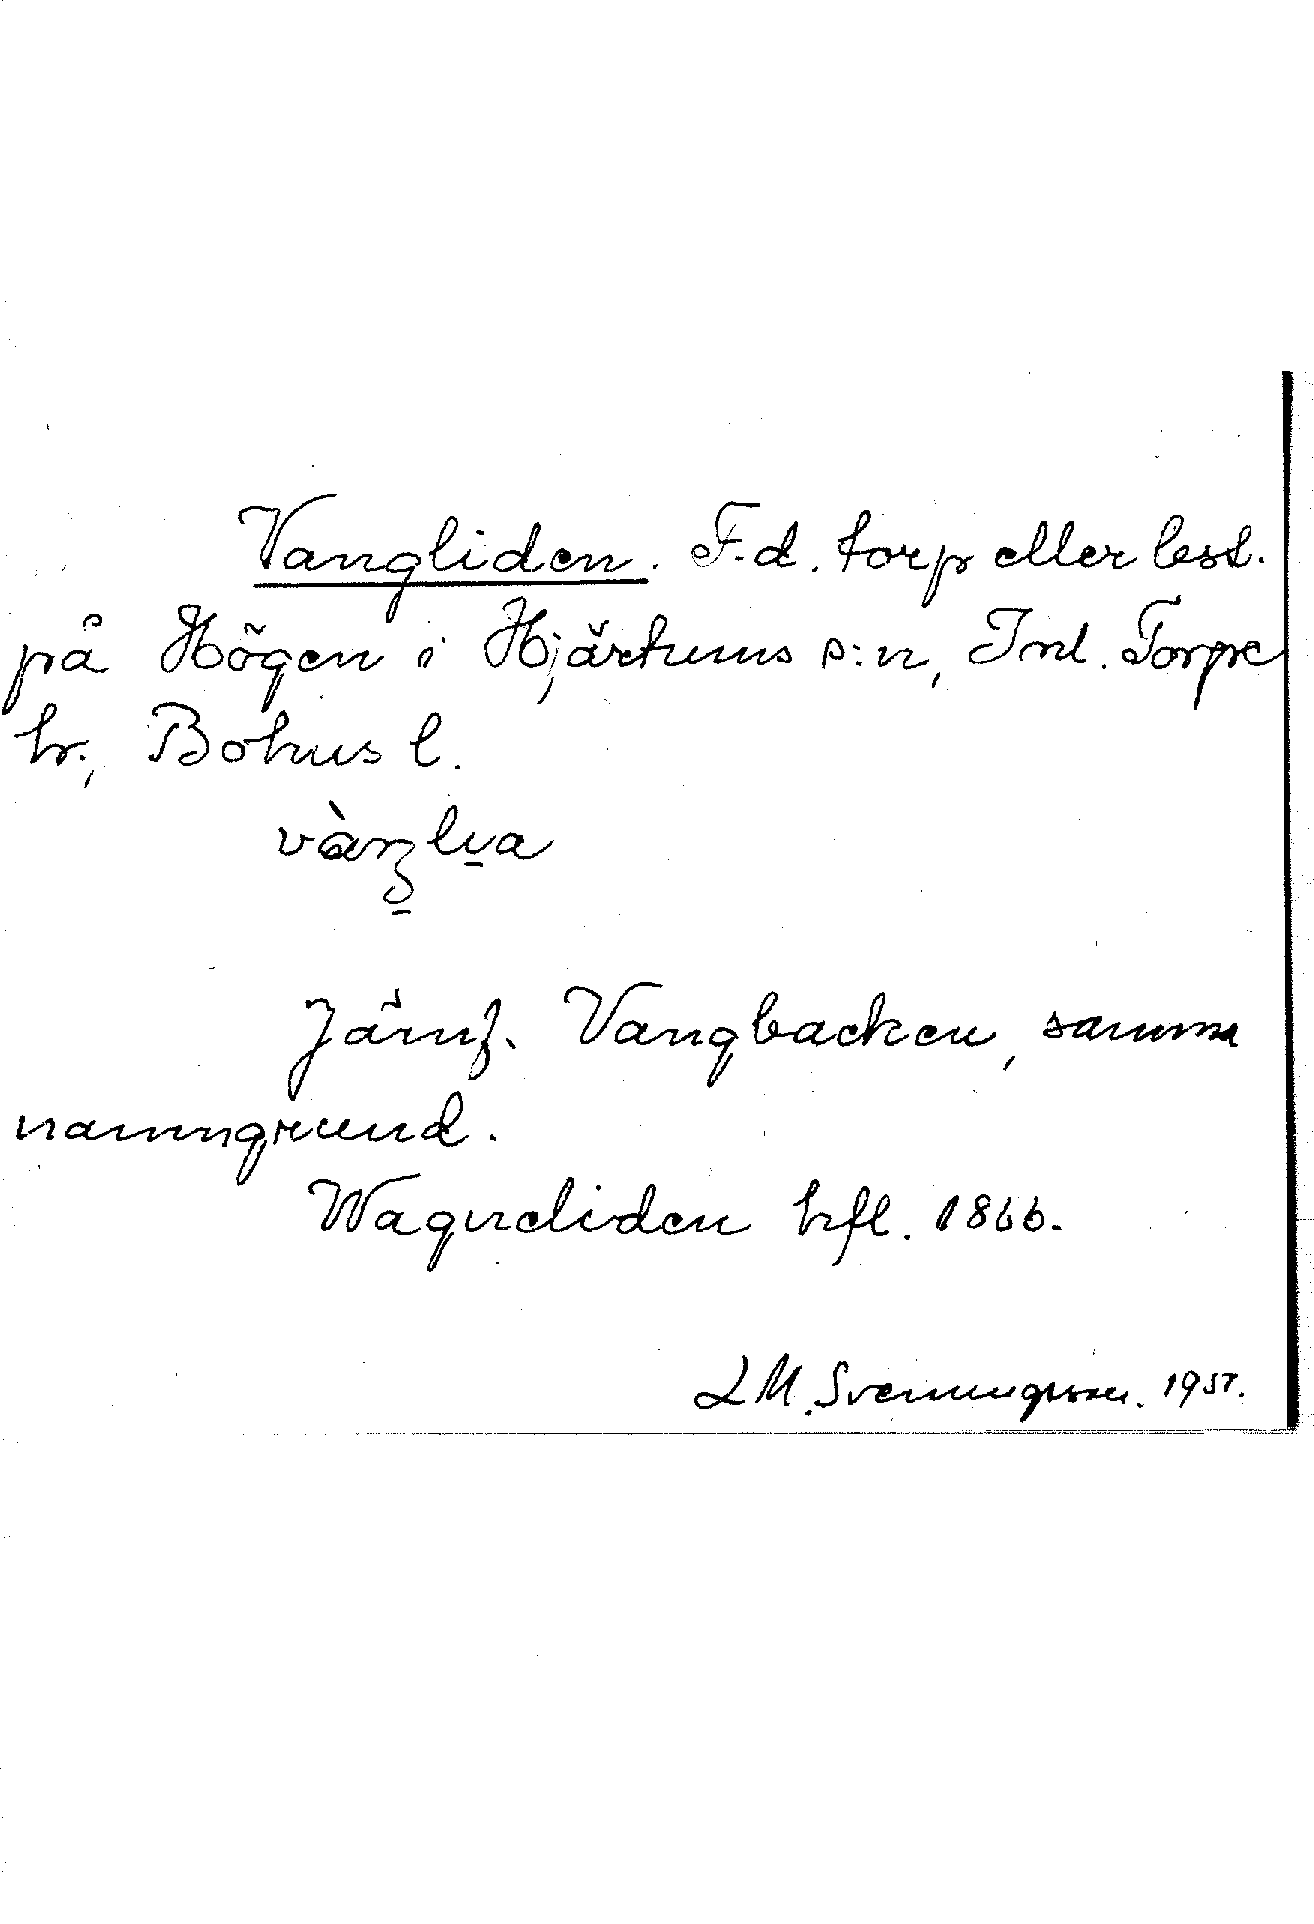 Vangliden. F.d. torp eller lest.
på Högen i Hjärtums s:n, Inl. Torpe
hr., Bohus l.
Jämf. Vangbacken, samma
namngrund.
Wagneliden hfl. 1866.
L M. Svenungsson. 1957.